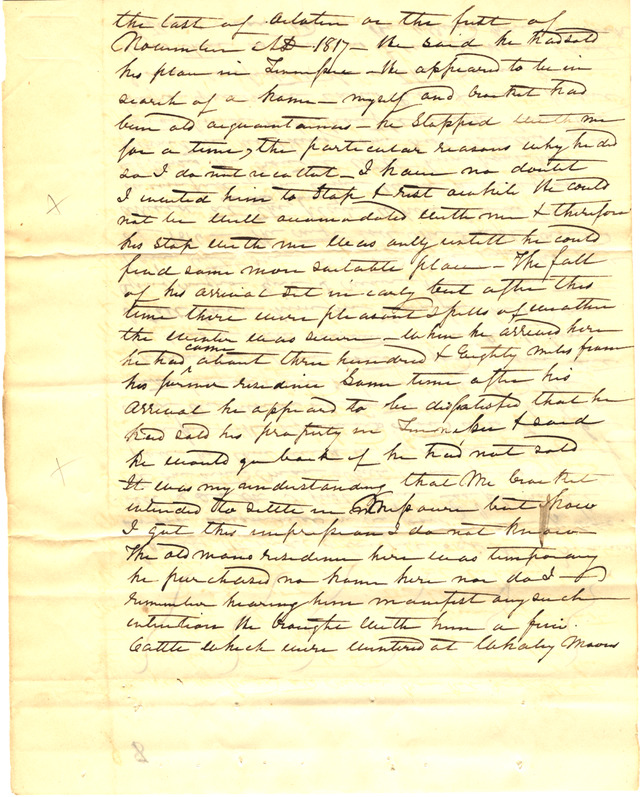 the last of October or the first of
November AD 1817 – He said he had sold
his place in Tennessee – He appeared to be in
search of a home – myself and Crocket had
been old acquaintances – he stopped with me
for a time, the particular reasons why he did
so I do not recollect – I have no doubt
I invited him to stop & rest awhile He could
not be well accomodated with me & therefore
his stop with me was only untill he could
find some more suitable place – The fall
of his arrival set in early but after this
time there were pleasant spells of weather
the winter was severe – when he arrived here
he had come about three hundred & Eighty miles from
his former residence Some time after his
arrival he appeared to be dissatisfied that he
had sold his property in Tennessee & said
he would go back if he had not sold
It was my understanding that Mr Crocket
intended to settle in Missouri but how
I got this impression I do not know
The old mans residence here was temporary
he purchased no home here nor do I
remember hearing him manifest any such
intention He brought with him a few
Cattle which were wintered at Moores
8